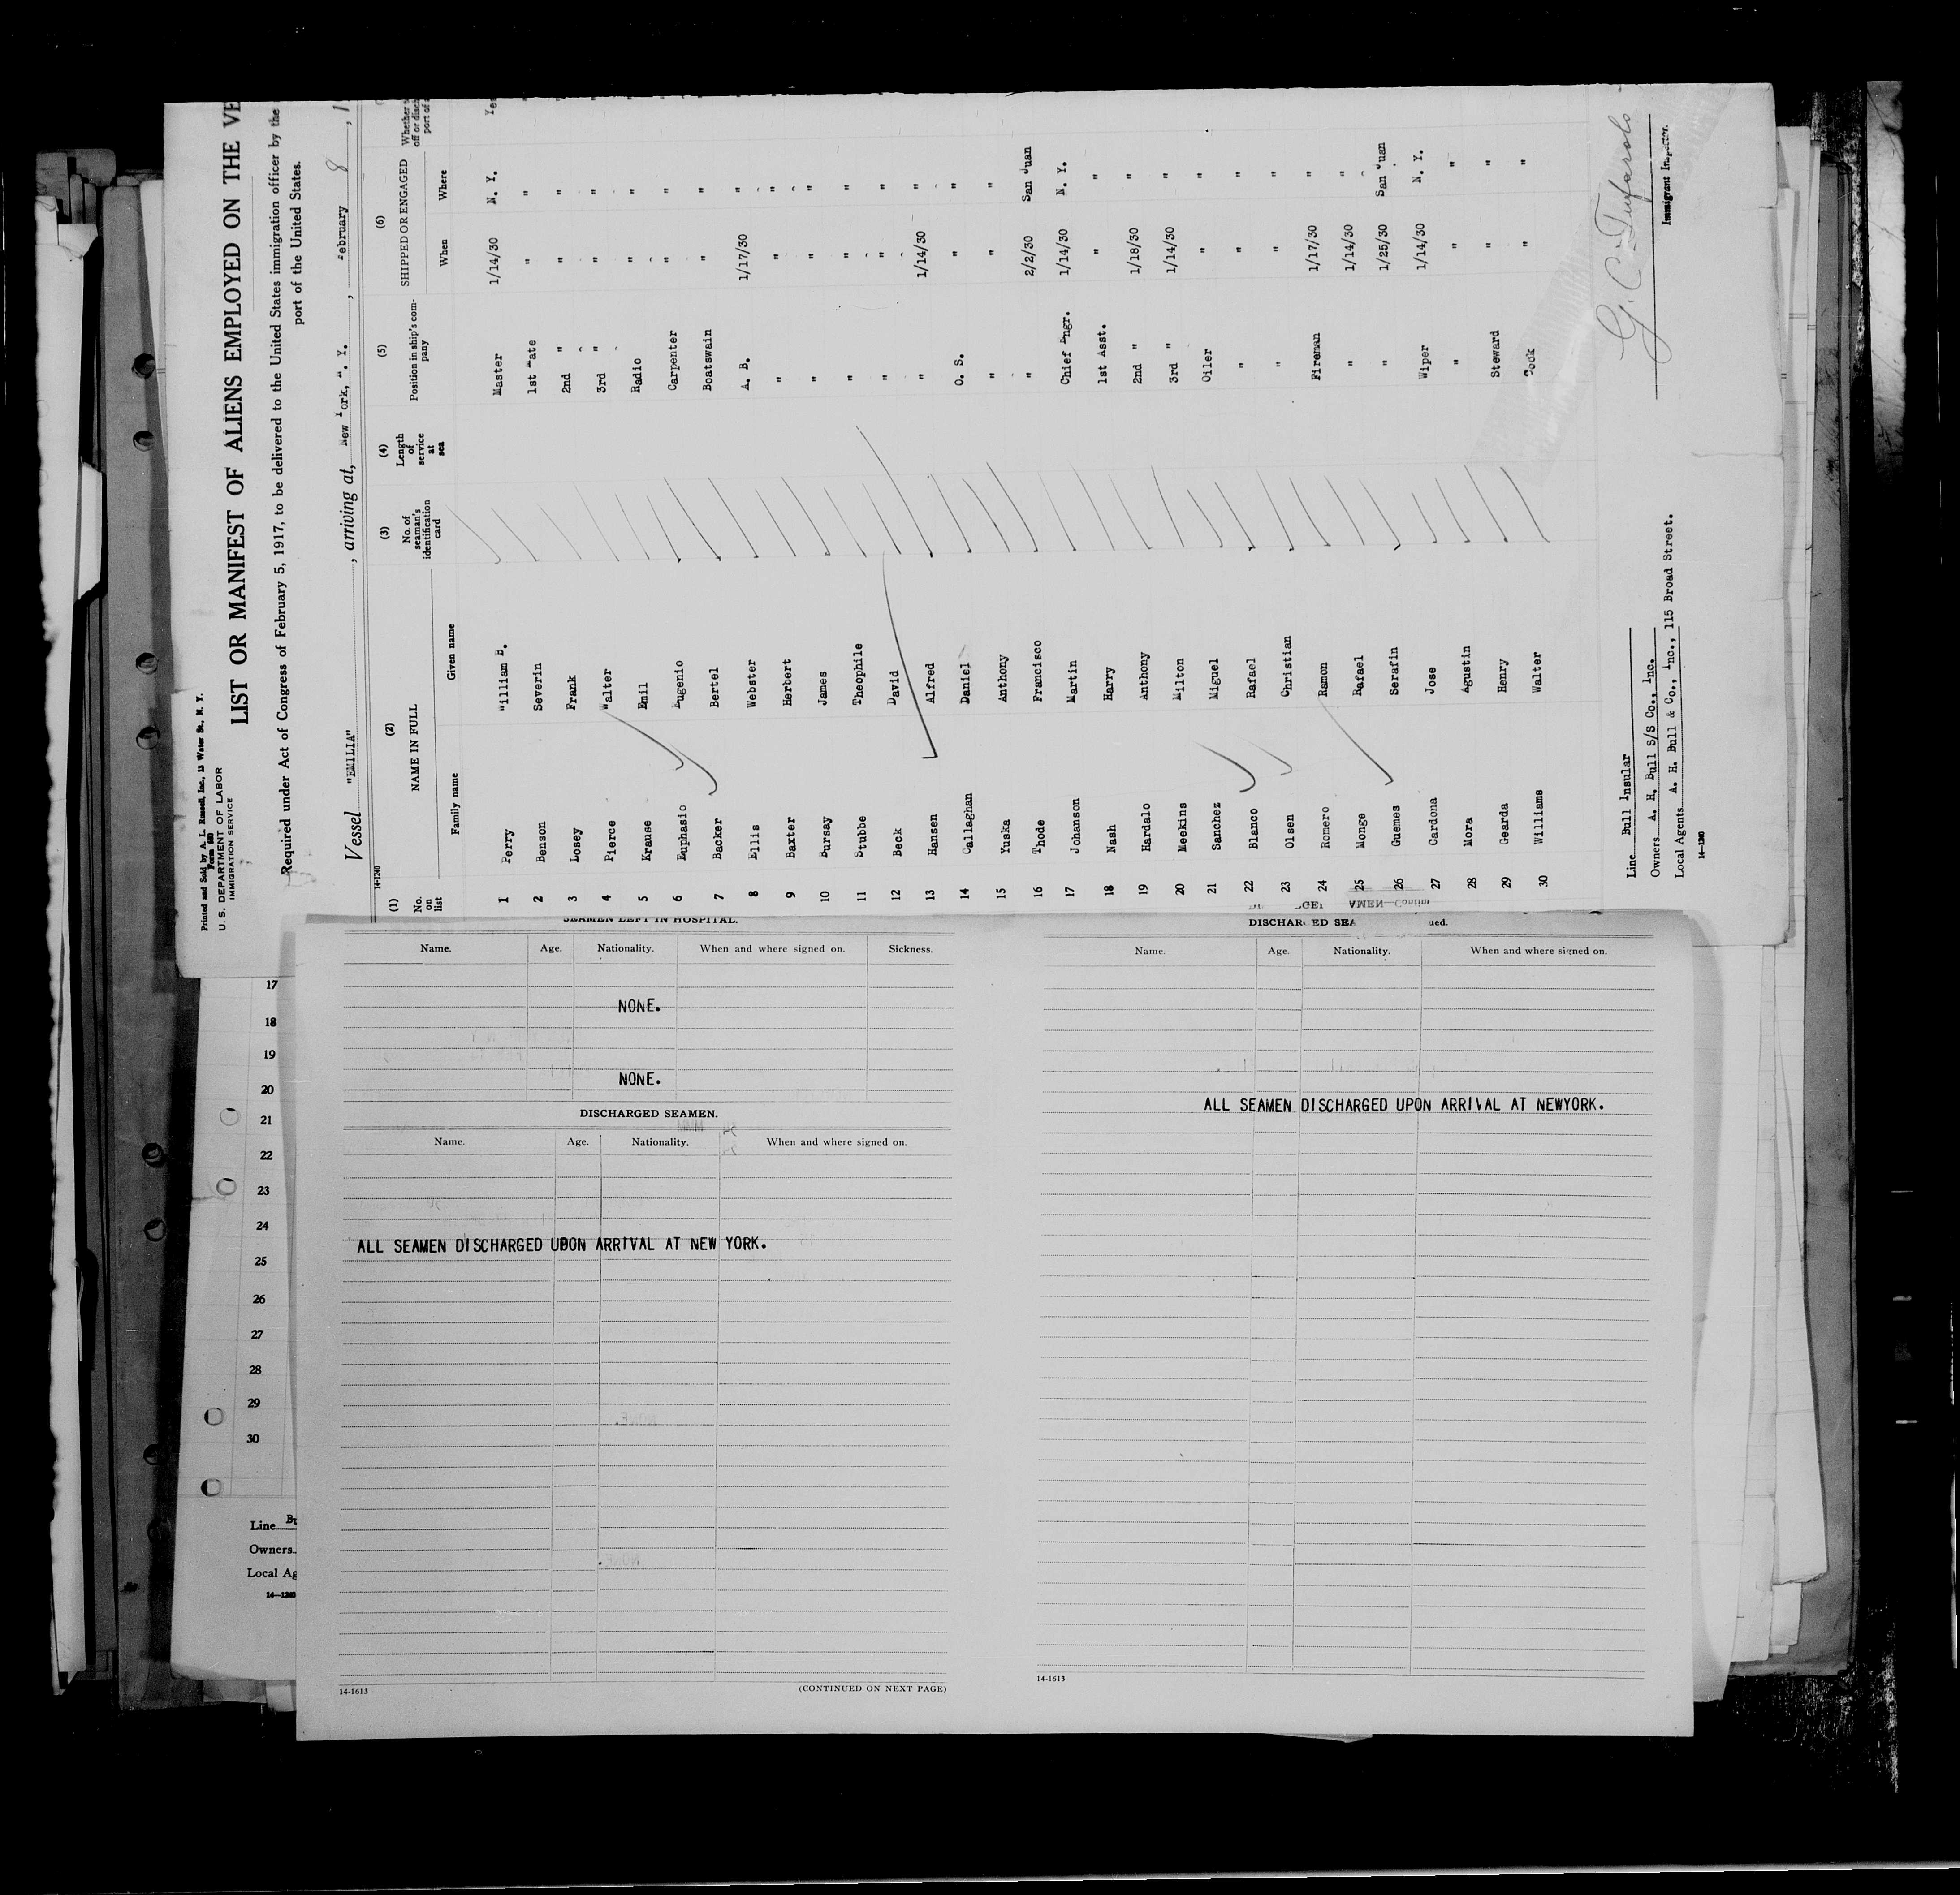 Printed and Sold by A. L. Russell, Inc., 13 Water St., N. Y.
U. S. DEPARTMENT OF LABOR
IMMIGRATION SERVICE
LIST OR MANIFEST OF ALIENS EMPLOYED ON THE VE
Required under Act of Congress of February 5, 1917, to be delivered to the United States immigration officer by the
port of the United States.
Vessel "EMILIA", arriving at, New York, N. Y., February 8, 1
14-1240
(1) No. on list
(2) NAME IN FULL
Family name Given name
(3) No. of seaman's identification card
(4) Length of service at sea
(5) Position in ship's company
(6) SHIPPED OR ENGAGED
When Where
1 Perry William B. Master 1/14/30 N. Y. Yes
2 Benson Severin 1st Mate " "
3 Losey Frank 2nd " " "
4 Pierce Walter 3rd " " "
5 Krause Emil Radio " "
6 Euphasio Eugenio Carpenter " "
7 Backer Bertel Boatswain " "
8 Ellis Webster A. B. 1/17/30 "
9 Baxter Herbert " " "
10 Bursay James " " "
11 Stubbe Theophile " " "
12 Beck David " " "
13 Hansen Alfred " 1/14/30 "
14 Callaghan Daniel O. S. " "
15 Yuska Anthony " " "
16 Thode Francisco " 2/2/30 San Juan
17 Johanson Martin Chief Engr. 1/14/30 N. Y.
18 Nash Harry 1st Asst. " "
19 Hardalo Anthony 2nd " 1/18/30 "
20 Meekins Milton 3rd " 1/14/30 "
21 Sanchez Miguel Oiler " "
22 Blanco Rafael " " "
23 Olsen Christian " " "
24 Romero Ramon Fireman 1/17/30 "
25 Monge Rafael " 1/14/30 "
26 Guemes Serafin " 1/25/30 San Juan
27 Cardona Jose Wiper 1/14/30 N. Y.
28 Mora Agustin " " "
29 Gearda Henry Steward " "
30 Williams Walter Cook " "
Line Bull Insular
Owners A. H. Bull S/S Co., Inc.
Local Agents A. H. Bull & Co., Inc., 115 Broad Street.
14-1240
Immigrant Inspector.
SEAMEN LEFT IN HOSPITAL.
Name. Age. Nationality. When and where signed on. Sickness.
NONE.
NONE.
DISCHARGED SEAMEN.
Name. Age. Nationality. When and where signed on.
ALL SEAMEN DISCHARGED UPON ARRIVAL AT NEW YORK.
14-1613
(CONTINUED ON NEXT PAGE)
DISCHARGED SEA ued.
Name. Age. Nationality. When and where signed on.
ALL SEAMEN DISCHARGED UPON ARRIVAL AT NEWYORK.
14-1613
17
18
19
20
21
22
23
24
25
26
27
28
29
30
Line Bu
Owners
Local Ag
14-1240